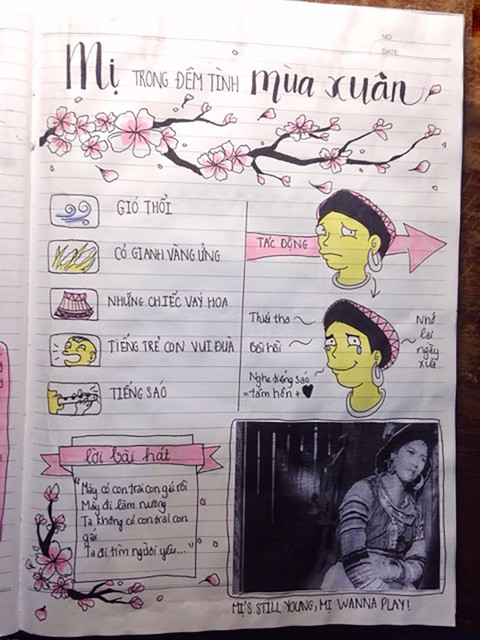 NO.
DATE
Mị TRONG ĐÊM TÌNH mùa xuân
GIÓ THỔI
CỎ GIANH VÀNG ỬNG
NHỮNG CHIẾC VÁY HOA
TIẾNG TRẺ CON VUI ĐÙA
TIẾNG SÁO
TÁC ĐỘNG
Thiết tha
Bồi hồi
Nghe tiếng sáo
= tâm hồn + ♥
Nhớ
lại
ngày
xưa
lời bài hát
"Mày có con trai con gái rồi
Mày đi làm nương
Ta không có con trai con
gái
Ta đi tìm người yêu..."
MỊ'S STILL YOUNG, MỊ WANNA PLAY!